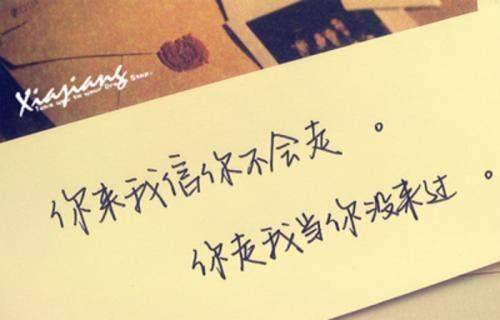 Xiajiang
你来我信你不会走 。
你走我当你没来过 。